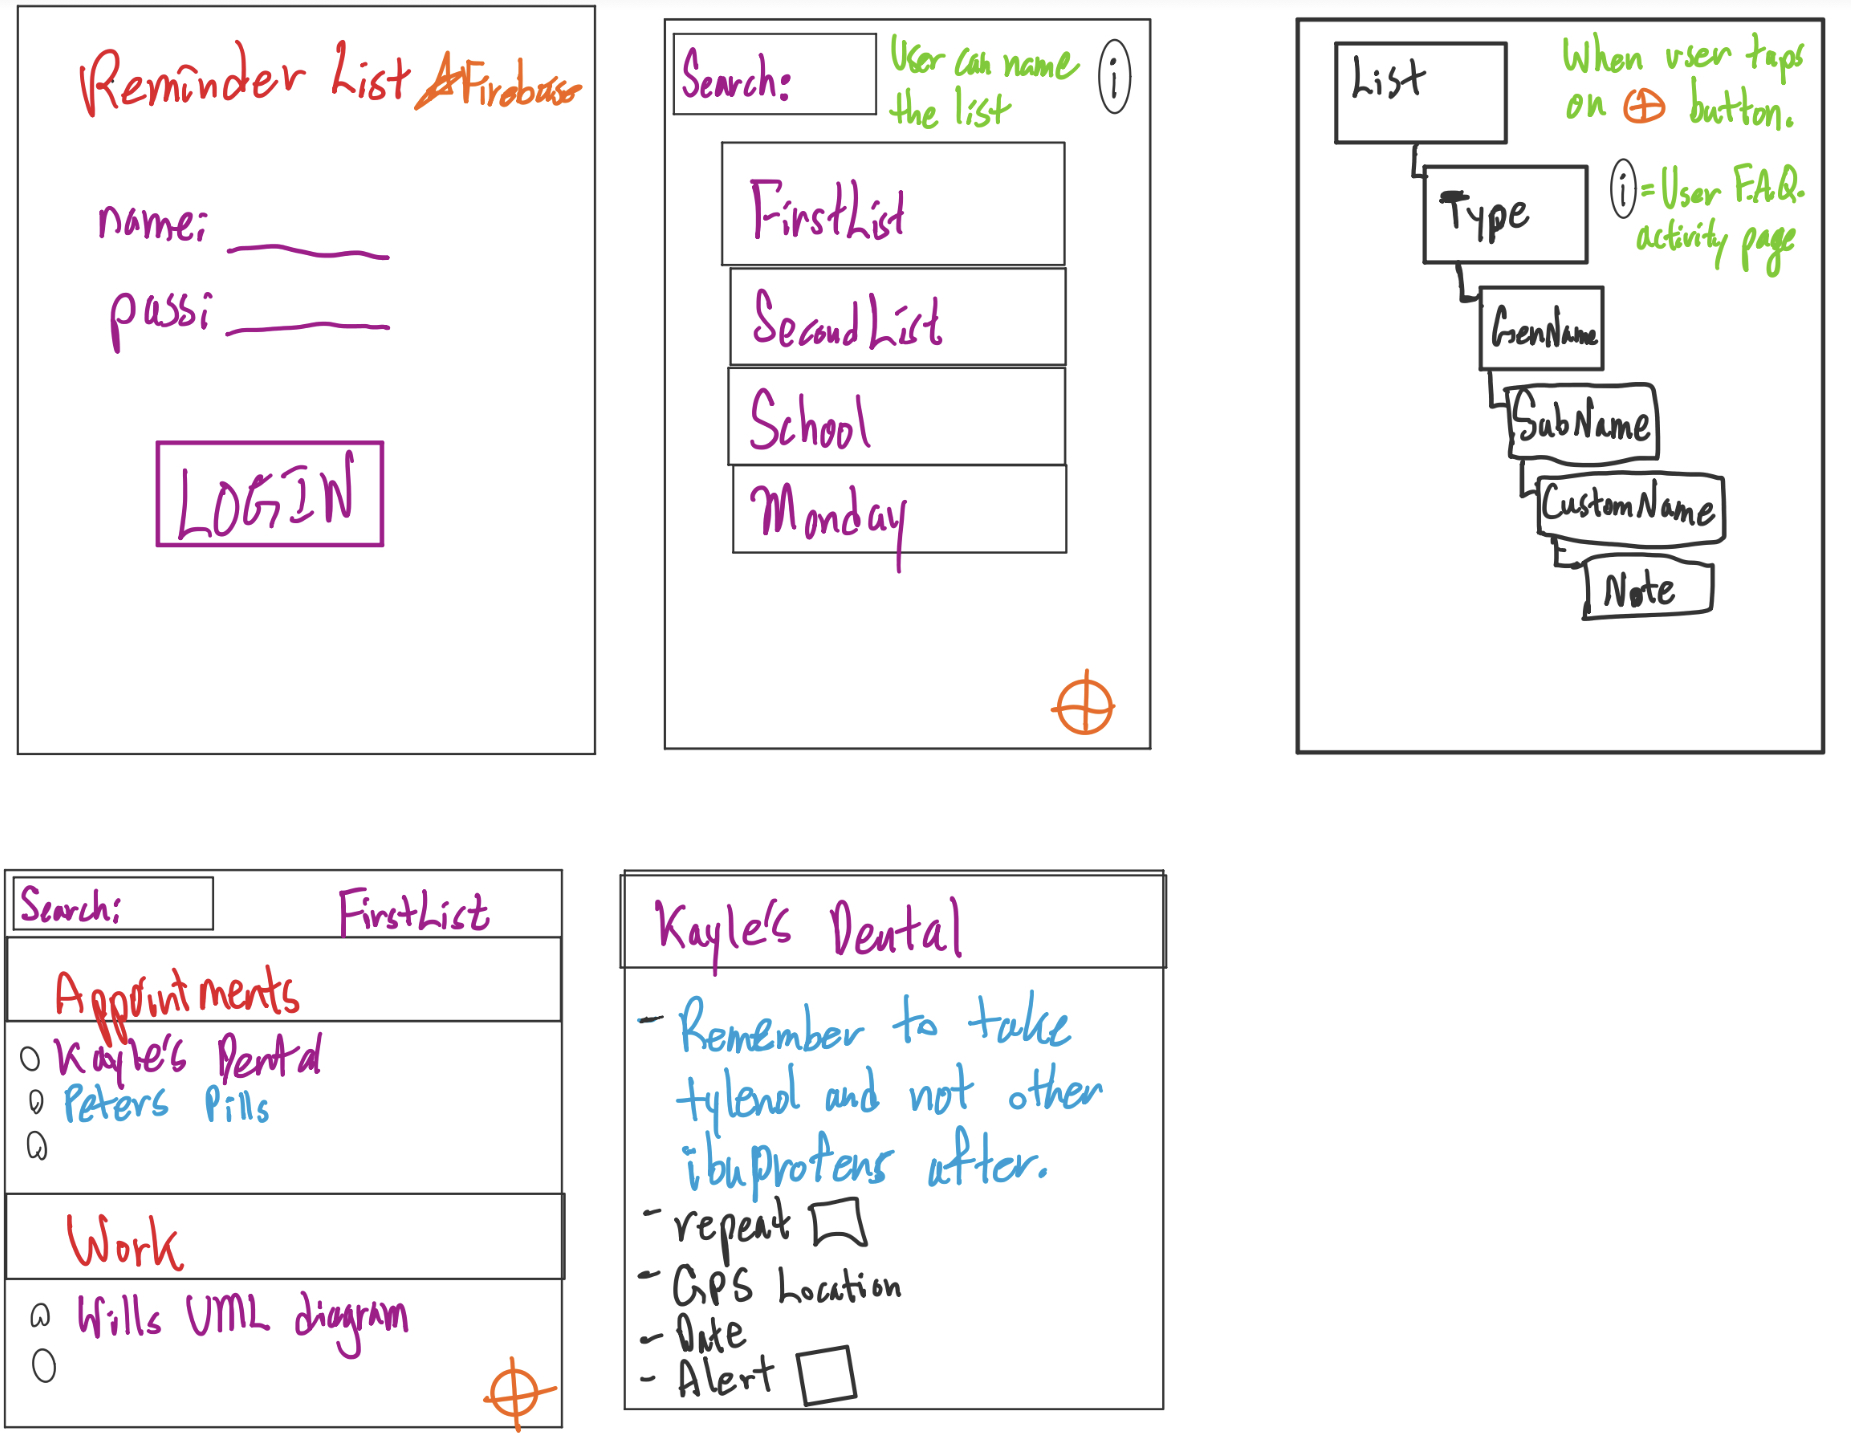 Reminder List Firebase
name:
pass:
LOGIN
Search:
User can name
the list
i
FirstList
SecondList
School
Monday
List
When user taps
on button.
Type
i = User F.A.Q.
activity page
GenName
SubName
CustomName
Note
Search:
FirstList
Appointments
Kayle's Dental
Peters Pills
Work
Wills UML diagram
Kayle's Dental
- Remember to take
tylenol and not other
ibuprofens after.
- repeat
- GPS Location
- Date
- Alert